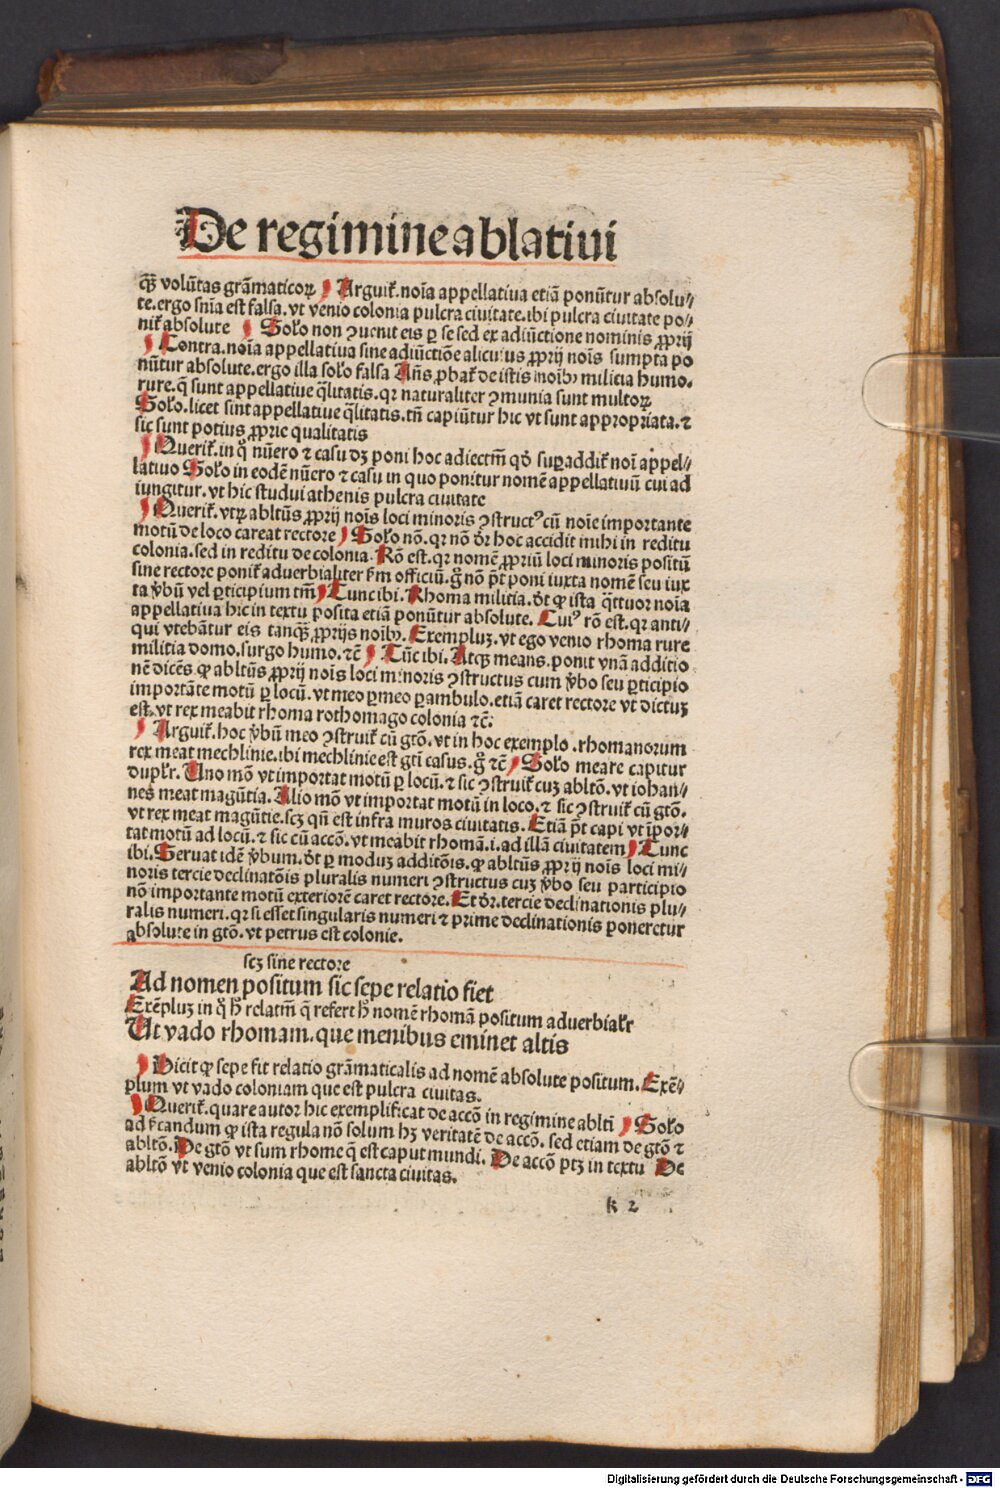 De regimine ablatiui
qꝫ̄ volūtas grāmaticoꝝ Arguiť. noīa appellatiua etiā ponūtur absolu⸗
te. ergo snīa est falsa. vt venio colonia pulcra ciuitate. ibi pulcra ciuitate po⸗
niť absolute Soło non ꝯuenit eis ꝑ se sed ex adiūctione nominis ꝓprij
Contra. noīa appellatiua sine adiūctiōe alicuius ꝓprij noīs sumpta po
nūtur absolute. ergo illa soło falsa Añs ꝓbať de istis noībꝫ milicia humo.
rure. q̄ sunt appellatiue q̄litatis. qr naturaliter ꝯmunia sunt multoꝝ
Soło. licet sint appellatiue q̄litatis. tñ capiūtur hic vt sunt appropriata. ⁊
sic sunt potius ꝓprie qualitatis
Queriť. in q̊ nūero ⁊ casu dꝫ poni hoc adiectm̄ qď suꝑaddiť noī appel⸗
latiuo Soło in eodē nūero ⁊ casu in quo ponitur nomē appellatiuū cui ad
iungitur. vt hic studui athenis pulcra ciuitate
Queriť. vtꝝ abltūs ꝓprij noīs loci minoris ꝯstructꝰ cū noīe importante
motū de loco careat rectore Soło nō. qr nō ďr hoc accidit mihi in reditu
colonia. sed in reditu de colonia. Rō est. qr nomē ꝓpriū loci minoris positū
sine rectore poniť aduerbialiter ẜm officiū. g̊ nō p̄t poni iuxta nomē seu iux
ta v̄bū vel ꝑticipium tm̄ Tunc ibi. Rhoma militia. ďt ꝙ ista q̄ttuor noīa
appellatiua hic in textu posita etiā ponūtur absolute. Cuiꝰ rō est. qr anti⸗
qui vtebātur eis tanqꝫ̄ ꝓprijs noībꝫ. Exempluꝫ. vt ego venio rhoma rure
militia domo. surgo humo. ⁊c̄ Tūc ibi. Atqꝫ means. ponit vnā additio
nē dicēs ꝙ abltūs ꝓprij noīs loci minoris ꝯstructus cum v̄bo seu ꝑticipio
importāte motū ꝑ locū. vt meo ꝑmeo ꝑambulo. etiā caret rectore vt dictuꝫ
est. vt rex meabit rhoma rothomago colonia ⁊c̄:
Arguiť. hoc v̄bū meo ꝯstruiť cū gtō. vt in hoc exemplo . rhomanorum
rex meat mechlinie. ibi mechlinie est gtī casus. g̊ ⁊c̄ Soło meare capitur
dupłr. Uno mō vt importat motū ꝑ locū. ⁊ sic ꝯstruiť cuꝫ abltō. vt iohan⸗
nes meat magūtia. Alio mō vt importat motū in loco. ⁊ sic ꝯstruiť cū gtō.
vt rex meat magūtie. scꝫ qñ est infra muros ciuitatis. Etiā p̄t capi vt īpor⸗
tat motū ad locū. ⁊ sic cū accō. vt meabit rhomā. i. ad illā ciuitatem Tunc
ibi. Seruat idē v̄bum. ďt ꝑ moduꝫ additōis. ꝙ abltūs ꝓprij noīs loci mi⸗
noris tercie declinatōis pluralis numeri ꝯstructus cuꝫ v̄bo seu participio
nō importante motū exteriorē caret rectore. Et ďr. tercie declinationis plu⸗
ralis numeri. qr si esset singularis numeri ⁊ prime declinationis poneretur
absolute in gtō. vt petrus est colonie.
scꝫ sine rectore
Ad nomen positum sic sepe relatio fiet
Exēpluꝫ in q̊ h̄ relatm̄ q̄ refert h̄ nomē rhomā positum aduerbiałr
Ut vado rhomam. que menibus eminet altis
Dicit ꝙ sepe fit relatio grāmaticalis ad nomē absolute positum. Exē⸗
plum vt vado coloniam que est pulcra ciuitas.
Queriť. quare autor hic exemplificat de accō in regimine abltī Soło
ad ẜcandum ꝙ ista regula nō solum hꝫ veritatē de accō. sed etiam de gtō ⁊
abltō. De gtō vt sum rhome q̄ est caput mundi. De accō ptꝫ in textu De
abltō vt venio colonia que est sancta ciuitas.
k 2
Digitalisierung gefördert durch die Deutsche Forschungsgemeinschaft - DFG